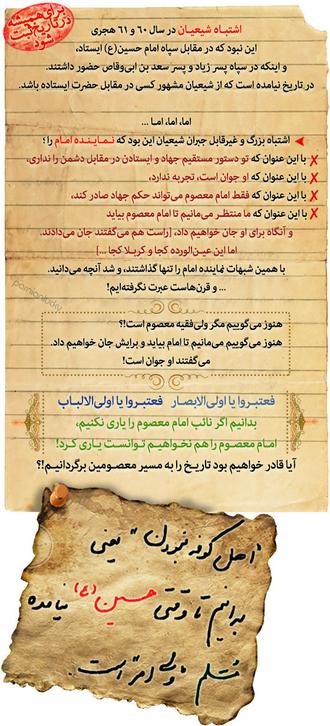 برای همیشه
در تاریخ ثبت
شود
اشتباه شیعیان در سال ۶۰ و ۶۱ هجری
این نبود که در مقابل سپاه امام حسین(ع) ایستاد،
و اینکه در سپاه پسر زیاد و پسر سعد بن ابی‌وقاص حضور داشتند.
در تاریخ نیامده است که از شیعیان مشهور کسی در مقابل حضرت ایستاده باشد.
اما، اما، اما ...
اشتباه بزرگ و غیرقابل جبران شیعیان این بود که نـمـایـنـده امـام را؛
با این عنوان که تو دستور مستقیم جهاد و ایستادن در مقابل دشمن را نداری،
با این عنوان که او جوان است، تجربه ندارد،
با این عنوان که فقط امام معصوم می‌تواند حکم جهاد صادر کند،
با این عنوان که ما منتظـر می‌مانیم تا امام معصوم بیاید
و آنگاه برای او جان خواهیم داد، [راست هم می‌گفتند جان می‌دادند.
اما این عیـن‌الورده کجا و کربـلا کجا ...]
با همین شبهات نماینده امام را تنها گذاشتند، و شد آنچه می‌دانید.
... و قرن‌هاست عبرت نگرفته‌ایم!
هنوز می‌گوییم مگر ولی‌فقیه معصوم است!؟
هنوز می‌گوییم می‌مانیم تا امام بیاید و برایش جان خواهیم داد.
می‌گفتند او جوان است!
فعتبـروا یا اولی‌الابصـار فعتبـروا یا اولی‌الالباب
بدانیم اگر نائب امام معصوم را یاری نکنیم،
امـام معصـوم را هـم نخواهـیم توانسـت یـاری کـرد!
آیا قادر خواهیم بود تاریخ را به مسیر معصومین برگردانیم!؟
"اهل کوفه نبودن" یعنی
بدانیم تا وقتی حسین(ع) نیامده
مُسلم "ولی امر" است.